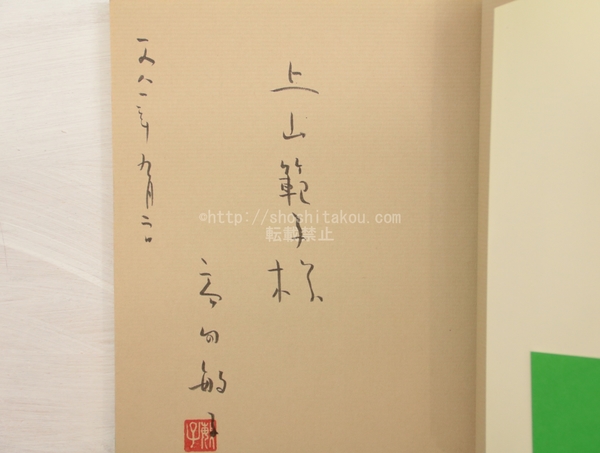 上山範子様
高向敏子
一九八一年九月二日
敏子
©http://shoshitakou.com/
転載禁止